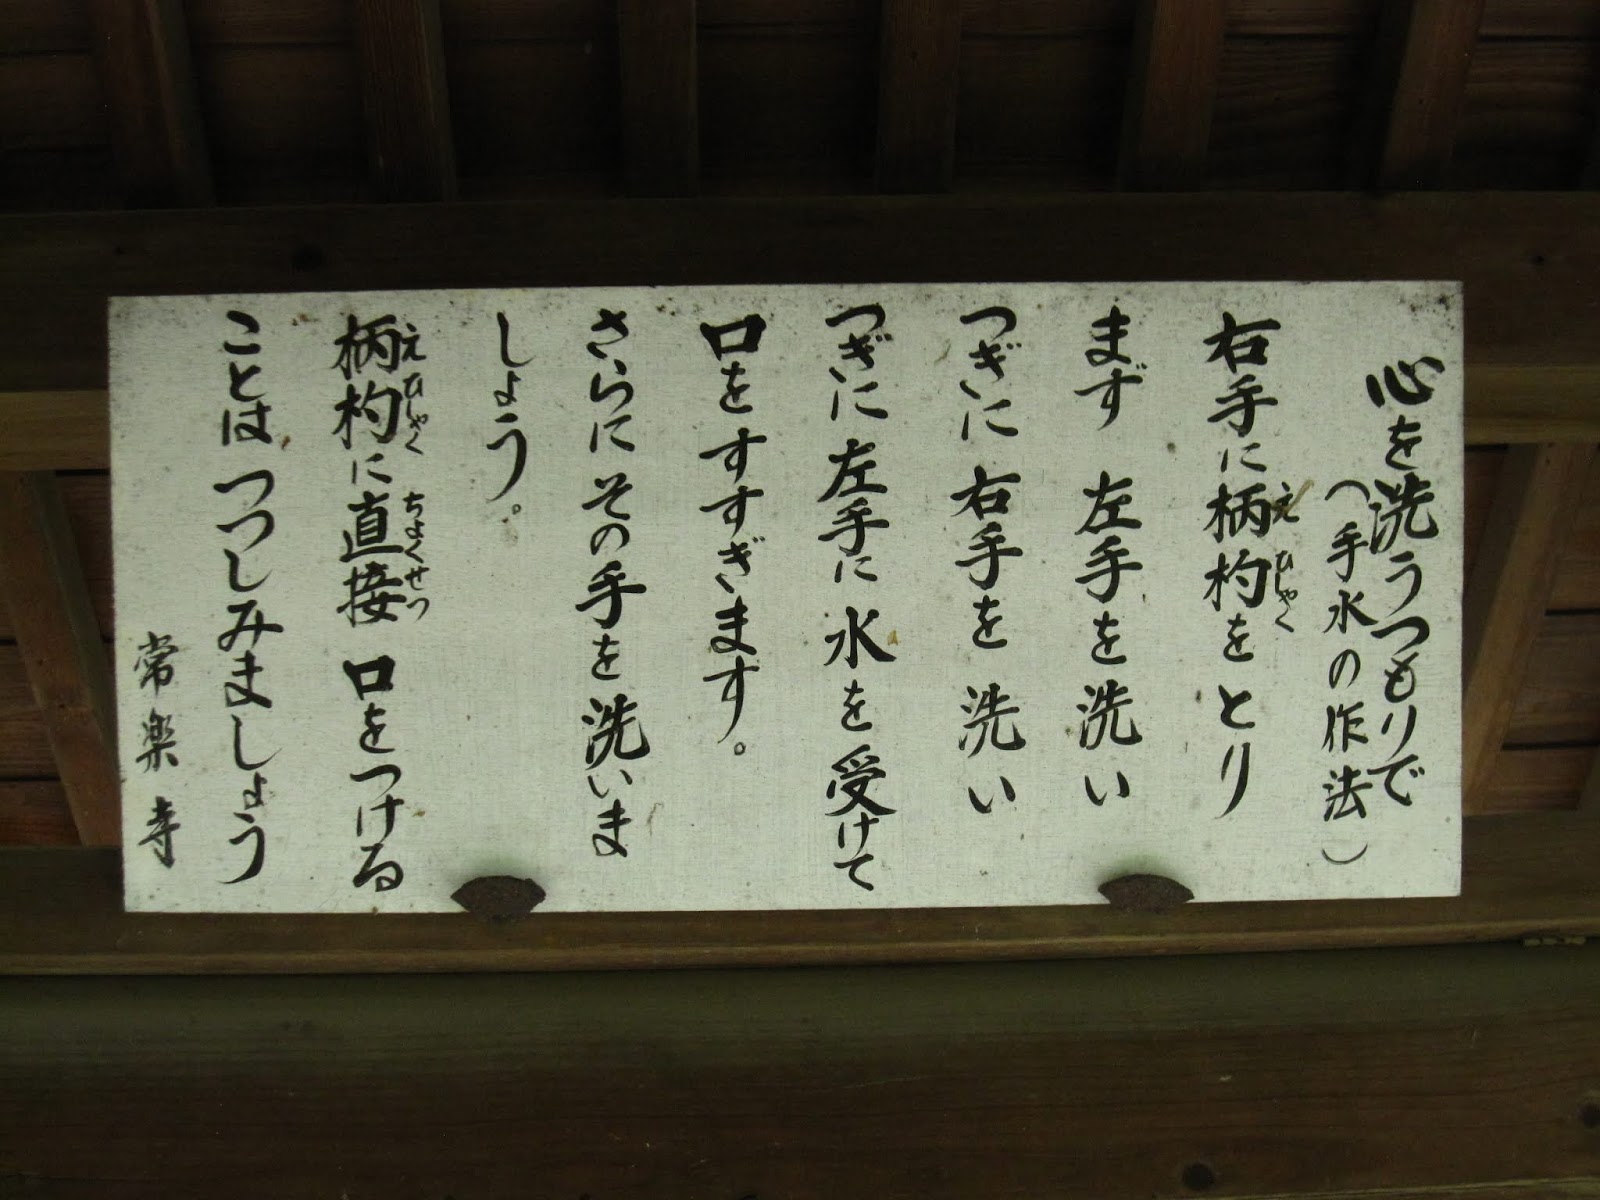 心を洗うつもりで
(手水の作法)
右手に柄杓をとり
えひしゃく
まず 左手を洗い
つぎに 右手を 洗い
つぎに 左手に 水を 受けて
口をすすぎます。
さらに その手を洗いま
しょう。
柄杓に直接 口をつける
えひしゃく ちょくせつ
ことは つつしみましょう
常楽寺